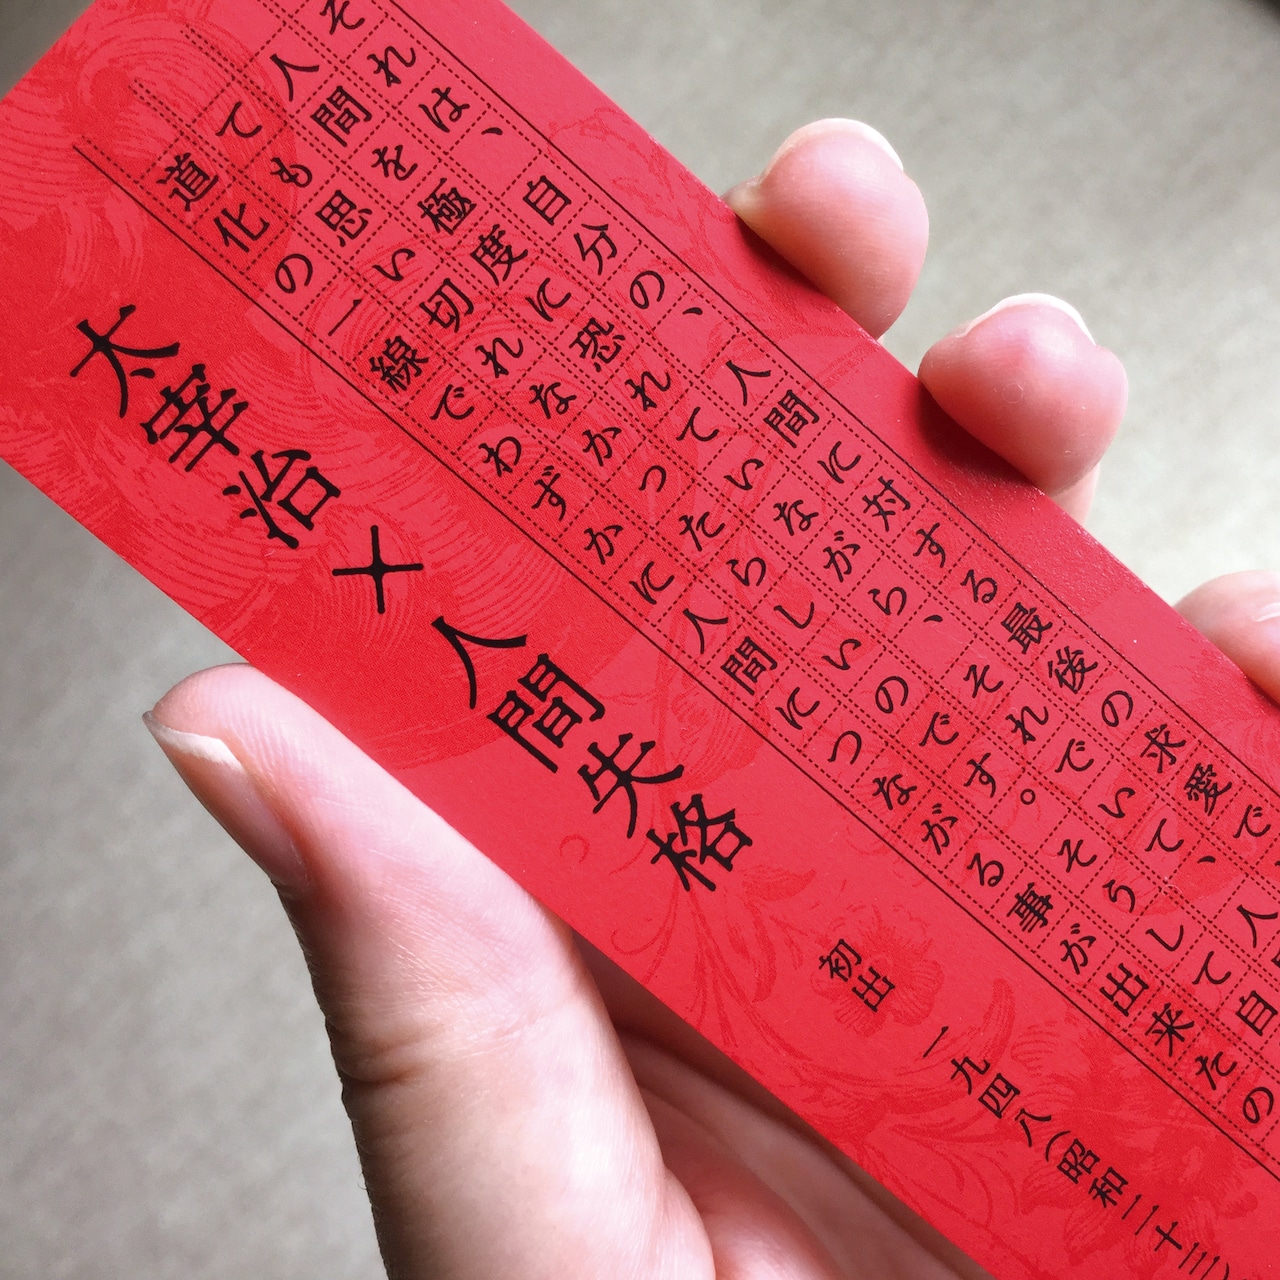 それは、自分の、人間に対する最後の求愛で
人間を極度に恐れていながら、それでいて、人
ても思い切れなかったらしいのです。そうして自
道化の一線でわずかに人間につながる事が出来たの
太宰治×人間失格
初出 一九四八(昭和二十三)